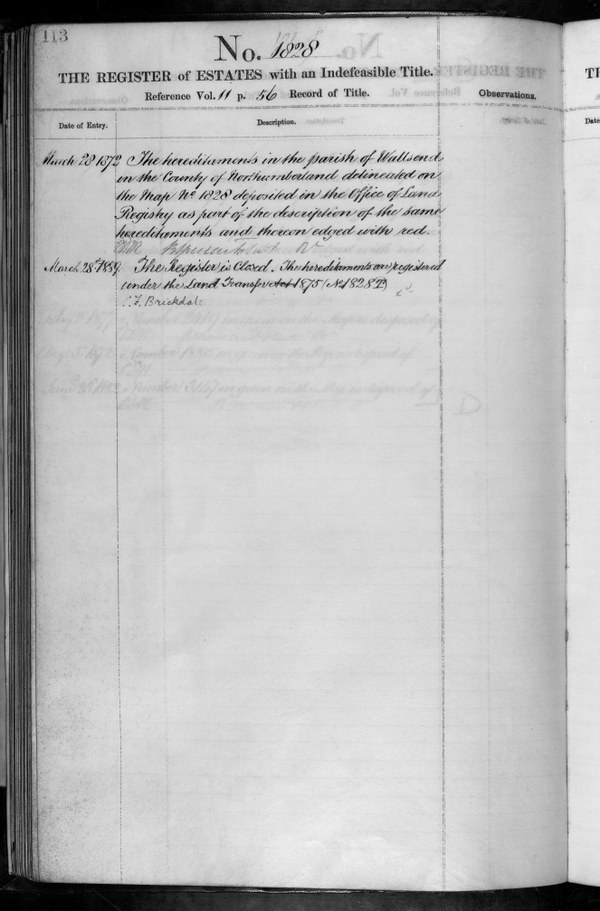 113
No. 1828
THE REGISTER of ESTATES with an Indefeasible Title.
Reference Vol. 11 p. 56 Record of Title.
Observations.
Date of Entry.
Description.
March 28 1872 The hereditaments in the parish of Wallsend
in the County of Northumberland delineated on
the Map No 1828 deposited in the Office of Land
Registry as part of the description of the same
hereditaments and thereon edged with red.
March 28th 1889. The Register is Closed. The hereditaments are registered
under the Land Transfer Act 1875 (No 1828
C. F. Brickdale